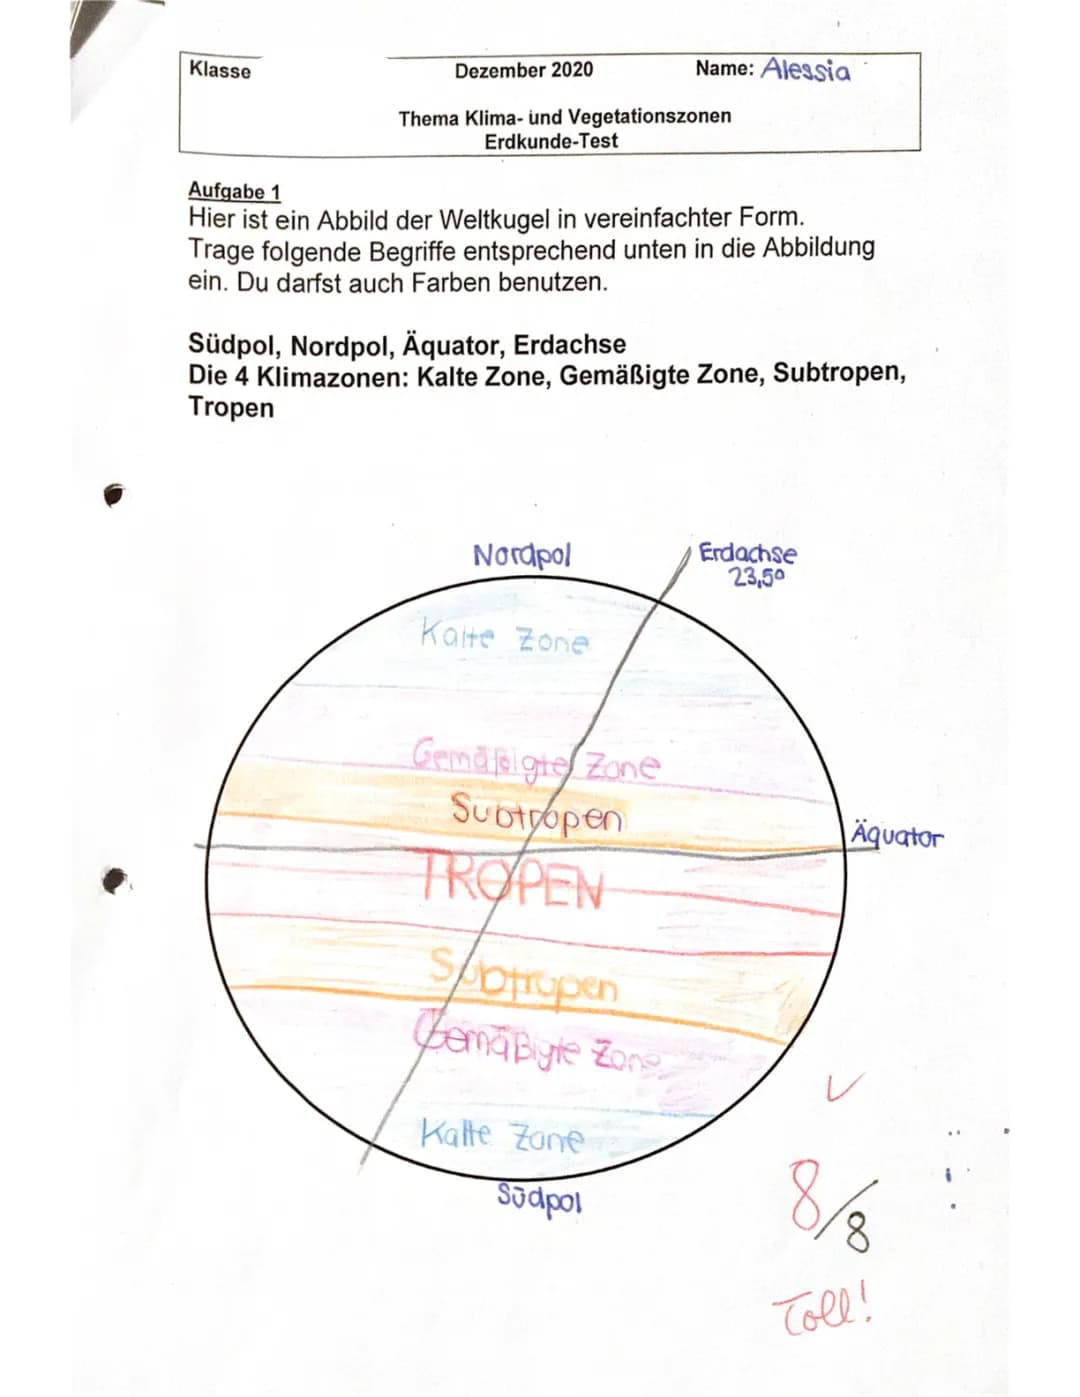 Klasse
Dezember 2020
Name: Alessia
Thema Klima- und Vegetationszonen
Erdkunde-Test
Aufgabe 1
Hier ist ein Abbild der Weltkugel in vereinfachter Form.
Trage folgende Begriffe entsprechend unten in die Abbildung
ein. Du darfst auch Farben benutzen.
Südpol, Nordpol, Äquator, Erdachse
Die 4 Klimazonen: Kalte Zone, Gemäßigte Zone, Subtropen,
Tropen
Nordpol
Erdachse
23,5°
Kalte Zone
Gemäßigte Zone
Subtropen
Äquator
TROPEN
Subtropen
Gemäßigte Zone
Kalte Zone
Südpol
8/8
Toll!